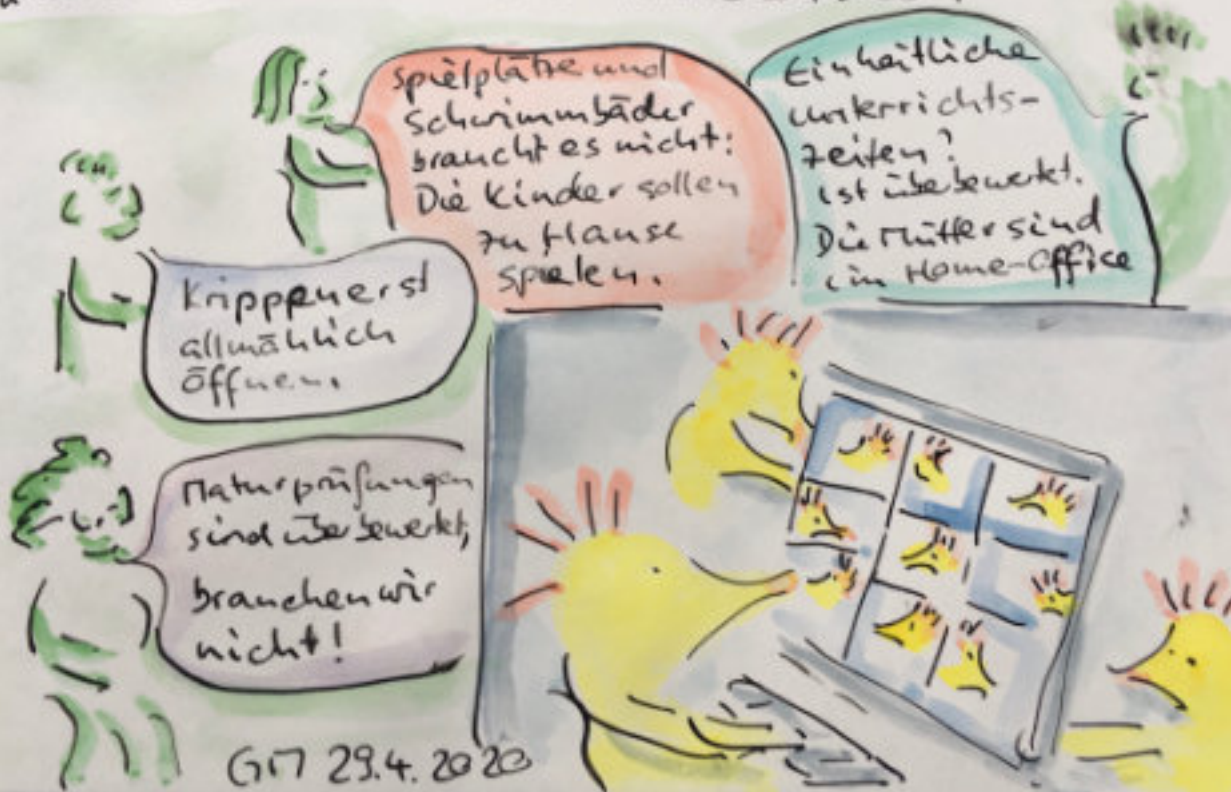 Spielplätze und
Schwimmbäder
braucht es nicht:
Die Kinder sollen
zu Hause
spielen.
Einheitliche
Unterrichts-
zeiten?
ist überbewertet.
Die Mütter sind
im Home-Office
Kripppen erst
allmählich
öffnen.
Maturprüfungen
sind überbewertet,
brauchen wir
nicht!
GM 29.4.2020